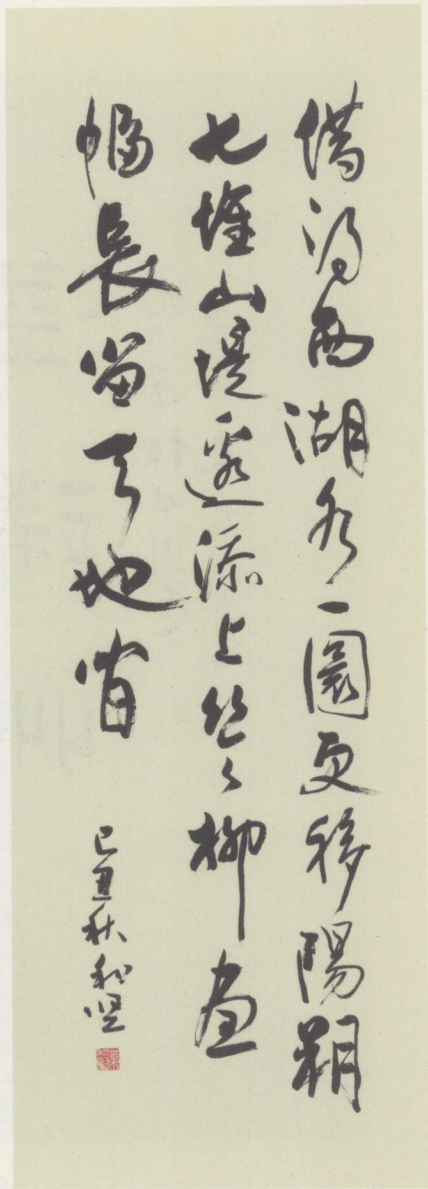 借得西湖水一圜更移陽朔
七堆山堤邊添上丝丝柳畫
幅長留天地間
己丑秋和坚